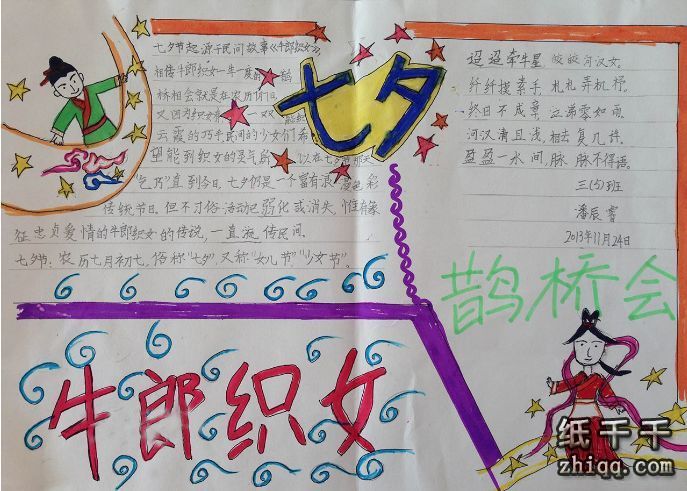 七夕节起源于民间故事《牛郎织女》，
相传牛郎织女一年一度的
桥相会就是在农历
又因为织女有一双
云霞的巧手民间的少女们希
望能到织女的灵气所以在七夕
乞巧"直到今日，七夕仍是一个富有浪漫色彩
传统节日。但不少俗活动已弱化或消失，惟有象
征忠贞爱情的牛郎织女的传说，一直流传民间。
七夕节：农历七月初七，俗称"七夕"，又称"女儿节""少女节"。
七夕
迢迢牵牛星 皎皎河汉女。
纤纤擢素手，札札弄机杼。
终日不成章，泣涕零如雨。
河汉清且浅，相去复几许。
盈盈一水间，脉脉不得语。
三(5)班
潘辰睿
2013年11月24日
鹊桥会
牛郎织女
纸千千
zhiqq.com